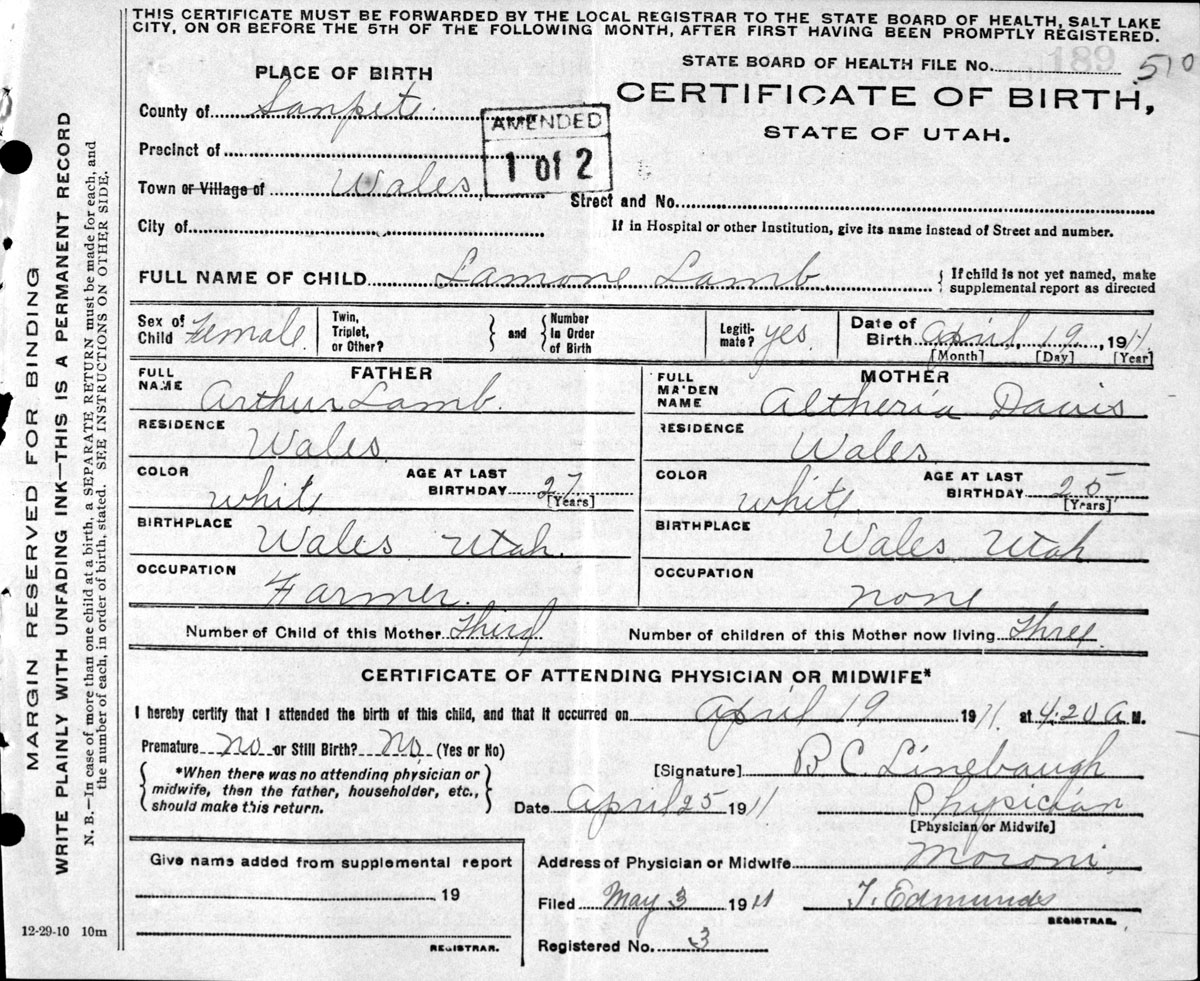 THIS CERTIFICATE MUST BE FORWARDED BY THE LOCAL REGISTRAR TO THE STATE BOARD OF HEALTH, SALT LAKE
CITY, ON OR BEFORE THE 5TH OF THE FOLLOWING MONTH, AFTER FIRST HAVING BEEN PROMPTLY REGISTERED.
STATE BOARD OF HEALTH FILE No. 189 510
PLACE OF BIRTH
CERTIFICATE OF BIRTH,
STATE OF UTAH.
County of Sanpete
AMENDED
1 of 2
Precinct of
Town or Village of Wales
Street and No.
City of
If in Hospital or other Institution, give its name instead of Street and number.
FULL NAME OF CHILD Lamone Lamb { If child is not yet named, make
supplemental report as directed
Sex of
Child Female
Twin,
Triplet,
or Other?
} and {
Number
in Order
of Birth
Legiti-
mate? yes
Date of
Birth April, 19, 1911
[Month] [Day] [Year]
FATHER
FULL
NAME Arthur Lamb.
RESIDENCE
Wales
COLOR
white
AGE AT LAST
BIRTHDAY 27
[Years]
BIRTHPLACE
Wales Utah.
OCCUPATION
Farmer.
MOTHER
FULL
MAIDEN
NAME Altheria Davis
RESIDENCE
Wales
COLOR
white
AGE AT LAST
BIRTHDAY 25
[Years]
BIRTHPLACE
Wales Utah
OCCUPATION
none
Number of Child of this Mother Third
Number of children of this Mother now living Three.
CERTIFICATE OF ATTENDING PHYSICIAN OR MIDWIFE*
I hereby certify that I attended the birth of this child, and that it occurred on April 19 1911, at 4:20 A M.
Premature no or Still Birth? no (Yes or No)
{ *When there was no attending physician or
midwife, then the father, householder, etc.,
should make this return. }
[Signature] B C. Linebaugh
Date April 25 1911 Physician
[Physician or Midwife]
Give name added from supplemental report
, 19
REGISTRAR.
Address of Physician or Midwife Moroni,
Filed May 3 1911 T. Edmunds
REGISTRAR.
Registered No. 3
12-29-10 10m
MARGIN RESERVED FOR BINDING
WRITE PLAINLY WITH UNFADING INK—THIS IS A PERMANENT RECORD
N. B.—In case of more than one child at a birth, a SEPARATE RETURN must be made for each, and
the number of each, in order of birth, stated. SEE INSTRUCTIONS ON OTHER SIDE.